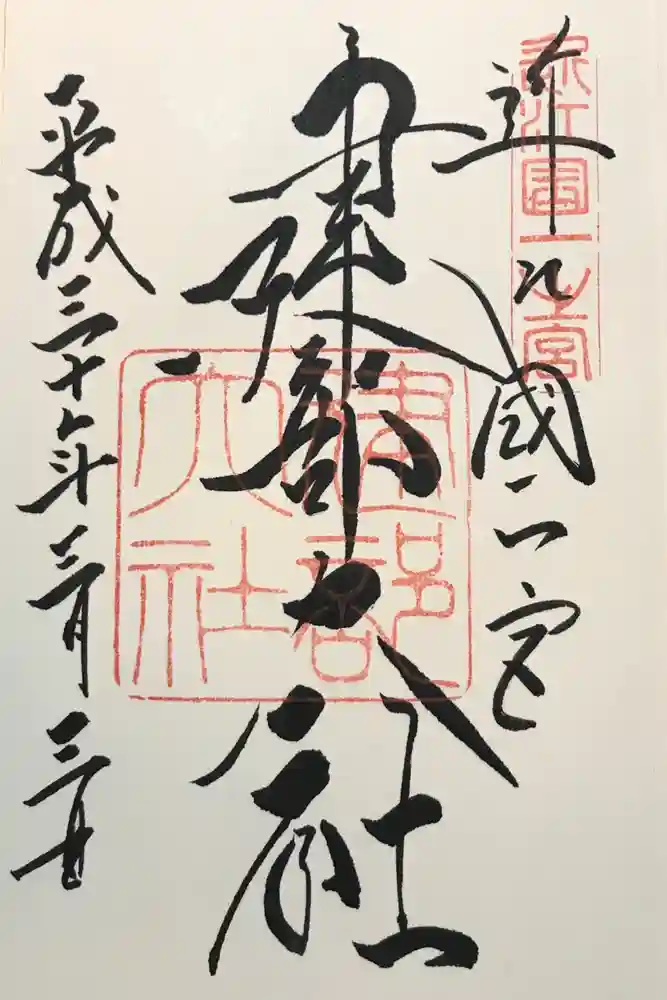 近江國一之宮
近江国一宮
建部大社
建部大社
平成三十年三月三日